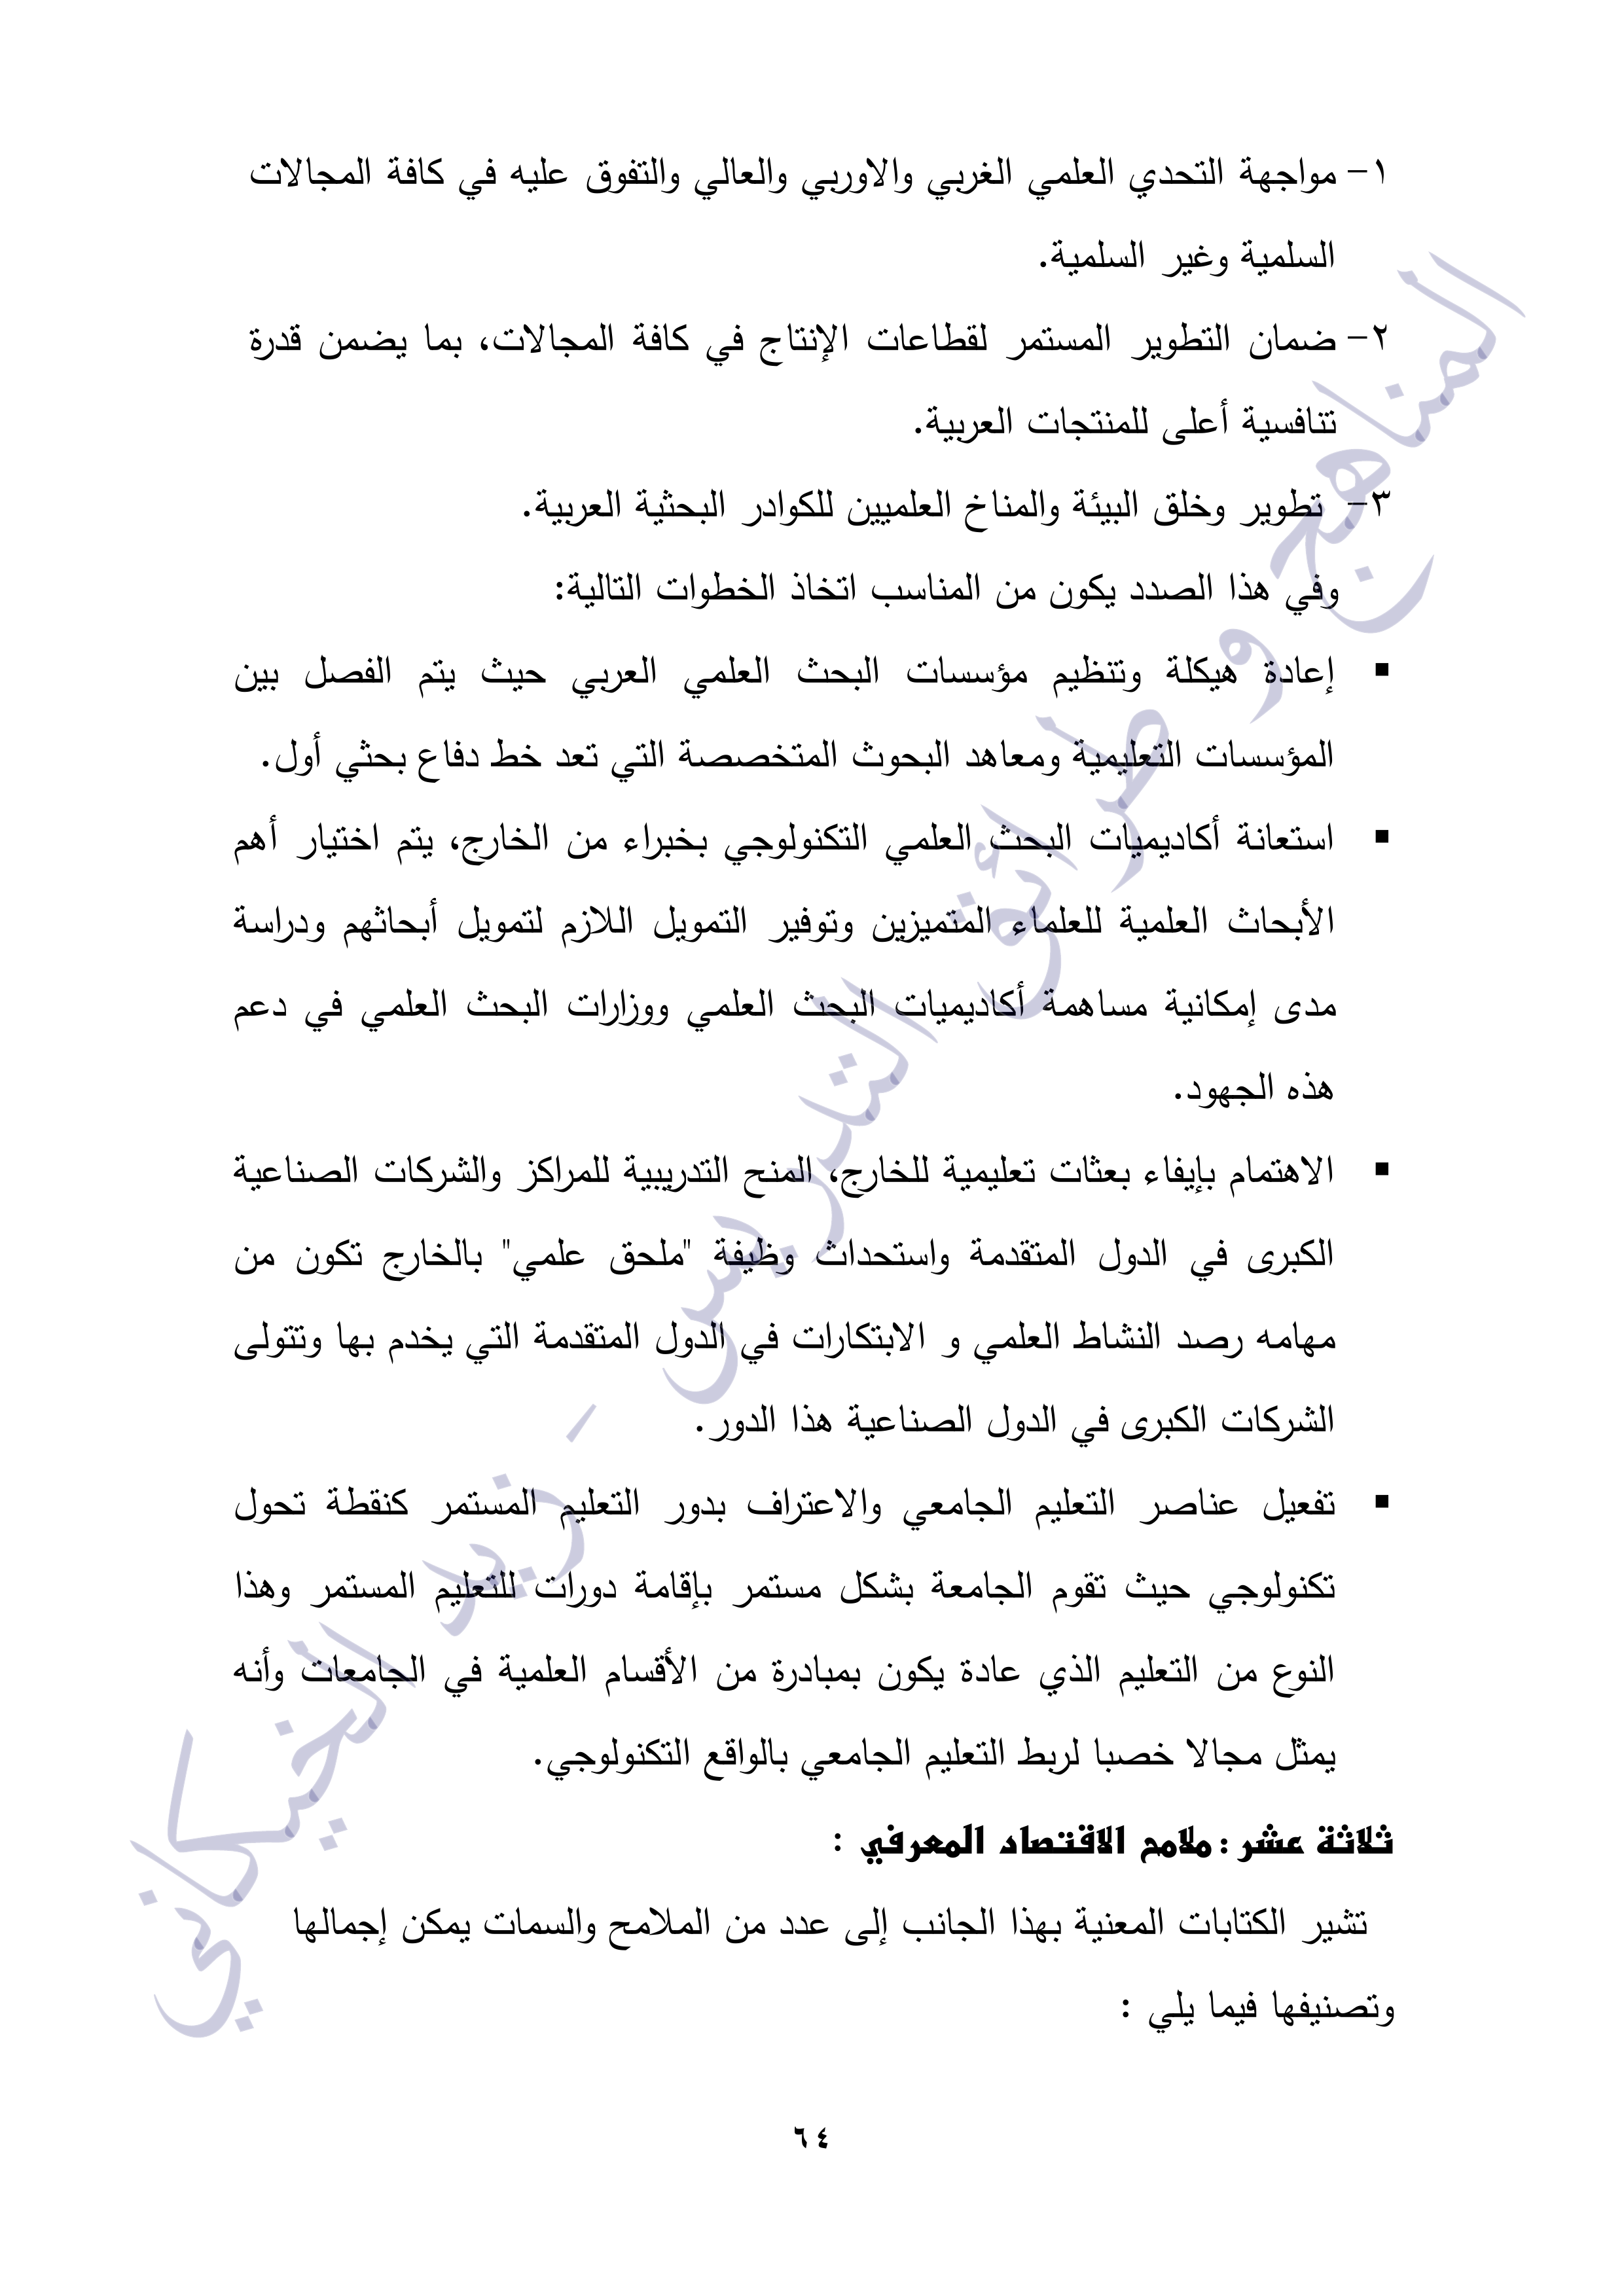 ١- مواجهة التحدي العلمي الغربي والاوربي والعالي والتفوق عليه في كافة المجالات
السلمية وغير السلمية.
٢- ضمان التطوير المستمر لقطاعات الإنتاج في كافة المجالات، بما يضمن قدرة
تنافسية أعلى للمنتجات العربية.
٣- تطوير وخلق البيئة والمناخ العلميين للكوادر البحثية العربية.
وفي هذا الصدد يكون من المناسب اتخاذ الخطوات التالية:
▪ إعادة هيكلة وتنظيم مؤسسات البحث العلمي العربي حيث يتم الفصل بين
المؤسسات التعليمية ومعاهد البحوث المتخصصة التي تعد خط دفاع بحثي أول.
▪ استعانة أكاديميات البحث العلمي التكنولوجي بخبراء من الخارج، يتم اختيار أهم
الأبحاث العلمية للعلماء المتميزين وتوفير التمويل اللازم لتمويل أبحاثهم ودراسة
مدى إمكانية مساهمة أكاديميات البحث العلمي ووزارات البحث العلمي في دعم
هذه الجهود.
▪ الاهتمام بإيفاء بعثات تعليمية للخارج، المنح التدريبية للمراكز والشركات الصناعية
الكبرى في الدول المتقدمة واستحداث وظيفة "ملحق علمي" بالخارج تكون من
مهامه رصد النشاط العلمي و الابتكارات في الدول المتقدمة التي يخدم بها وتتولى
الشركات الكبرى في الدول الصناعية هذا الدور.
▪ تفعيل عناصر التعليم الجامعي والاعتراف بدور التعليم المستمر كنقطة تحول
تكنولوجي حيث تقوم الجامعة بشكل مستمر بإقامة دورات للتعليم المستمر وهذا
النوع من التعليم الذي عادة يكون بمبادرة من الأقسام العلمية في الجامعات وأنه
يمثل مجالا خصبا لربط التعليم الجامعي بالواقع التكنولوجي.
ثلاثة عشر : ملامح الاقتصاد المعرفي :
تشير الكتابات المعنية بهذا الجانب إلى عدد من الملامح والسمات يمكن إجمالها
وتصنيفها فيما يلي :
٦٤
المناهج و طرائق التدريس - زيد الخيكاني